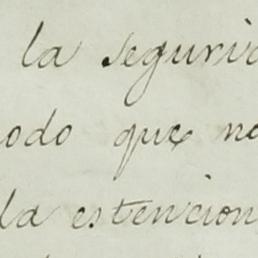 la seguri
odo que no
la estencion